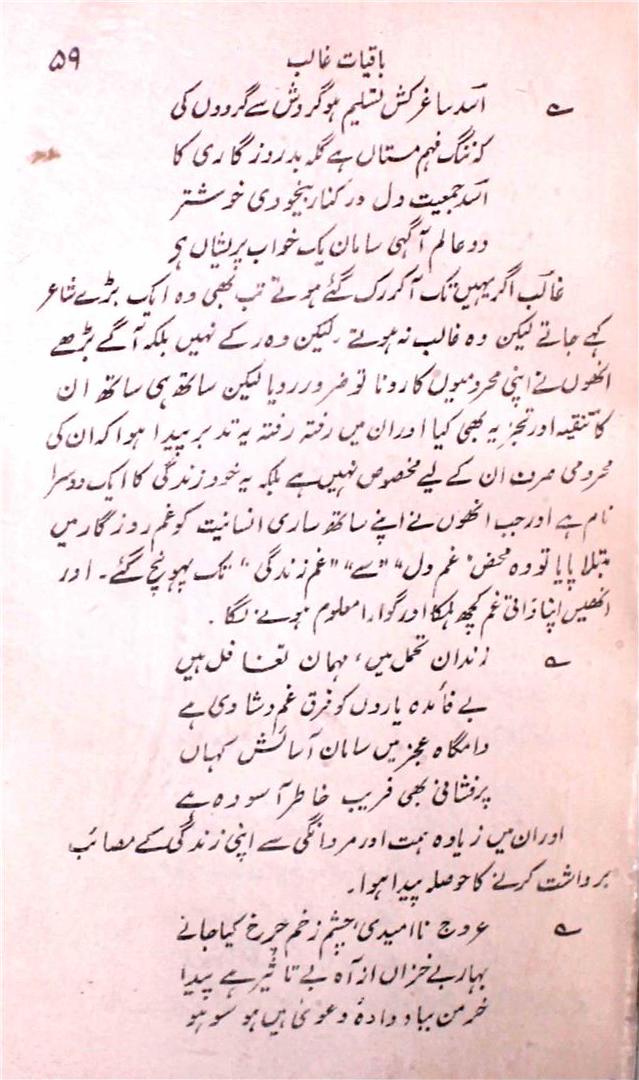 باقیات غالب ۵۹
؎ اسد ساغر کش تسلیم ہو گردش سے گردوں کی
کہ ننگ فہم مستاں ہے گلہ بد روزگاری کا
اسد جمعیت دل در کنار بیخودی خوشتر
دو عالم آگہی سامان یک خواب پریشاں ہو
غالب اگر یہیں تک آ کر رک گئے ہوتے تب بھی وہ ایک بڑے شاعر
کہے جاتے لیکن وہ غالب نہ ہوتے ۔ لیکن وہ رکے نہیں بلکہ آگے بڑھے
انھوں نے اپنی محرومیوں کا رونا تو ضرور رویا لیکن ساتھ ہی ساتھ ان
کا تنقید اور تجزیہ بھی کیا اور ان میں رفتہ رفتہ یہ تدبر پیدا ہوا کہ ان کی
محرومی صرف ان کے لیے مخصوص نہیں ہے بلکہ یہ خود زندگی کا ایک دوسرا
نام ہے اور جب انھوں نے اپنے ساتھ ساری انسانیت کو غم روزگار میں
مبتلا پایا تو وہ محض "غم دل" سے "غم زندگی" تک پہونچ گئے ۔ اور
انھیں اپنا ذاتی غم کچھ ہلکا اور گوارا معلوم ہونے لگا ۔
؎ زندان تحمل میں، مہمان تغافل ہیں
بے فائدہ یاروں کو فرق غم و شادی ہے
دامگاہ عجز میں سامان آسائش کہاں
پرفشانی بھی فریب خاطر آسودہ ہے
اور ان میں زیادہ ہمت اور مردانگی سے اپنی زندگی کے مصائب
برداشت کرنے کا حوصلہ پیدا ہوا ۔
؎ عروج ناامیدی، چشم زخم چرخ کیا جانے
بہار بے خزاں از آہ بے تاثیر ہے پیدا
خرمن بباد دادۂ دعویٰ ہیں ہو سو ہو